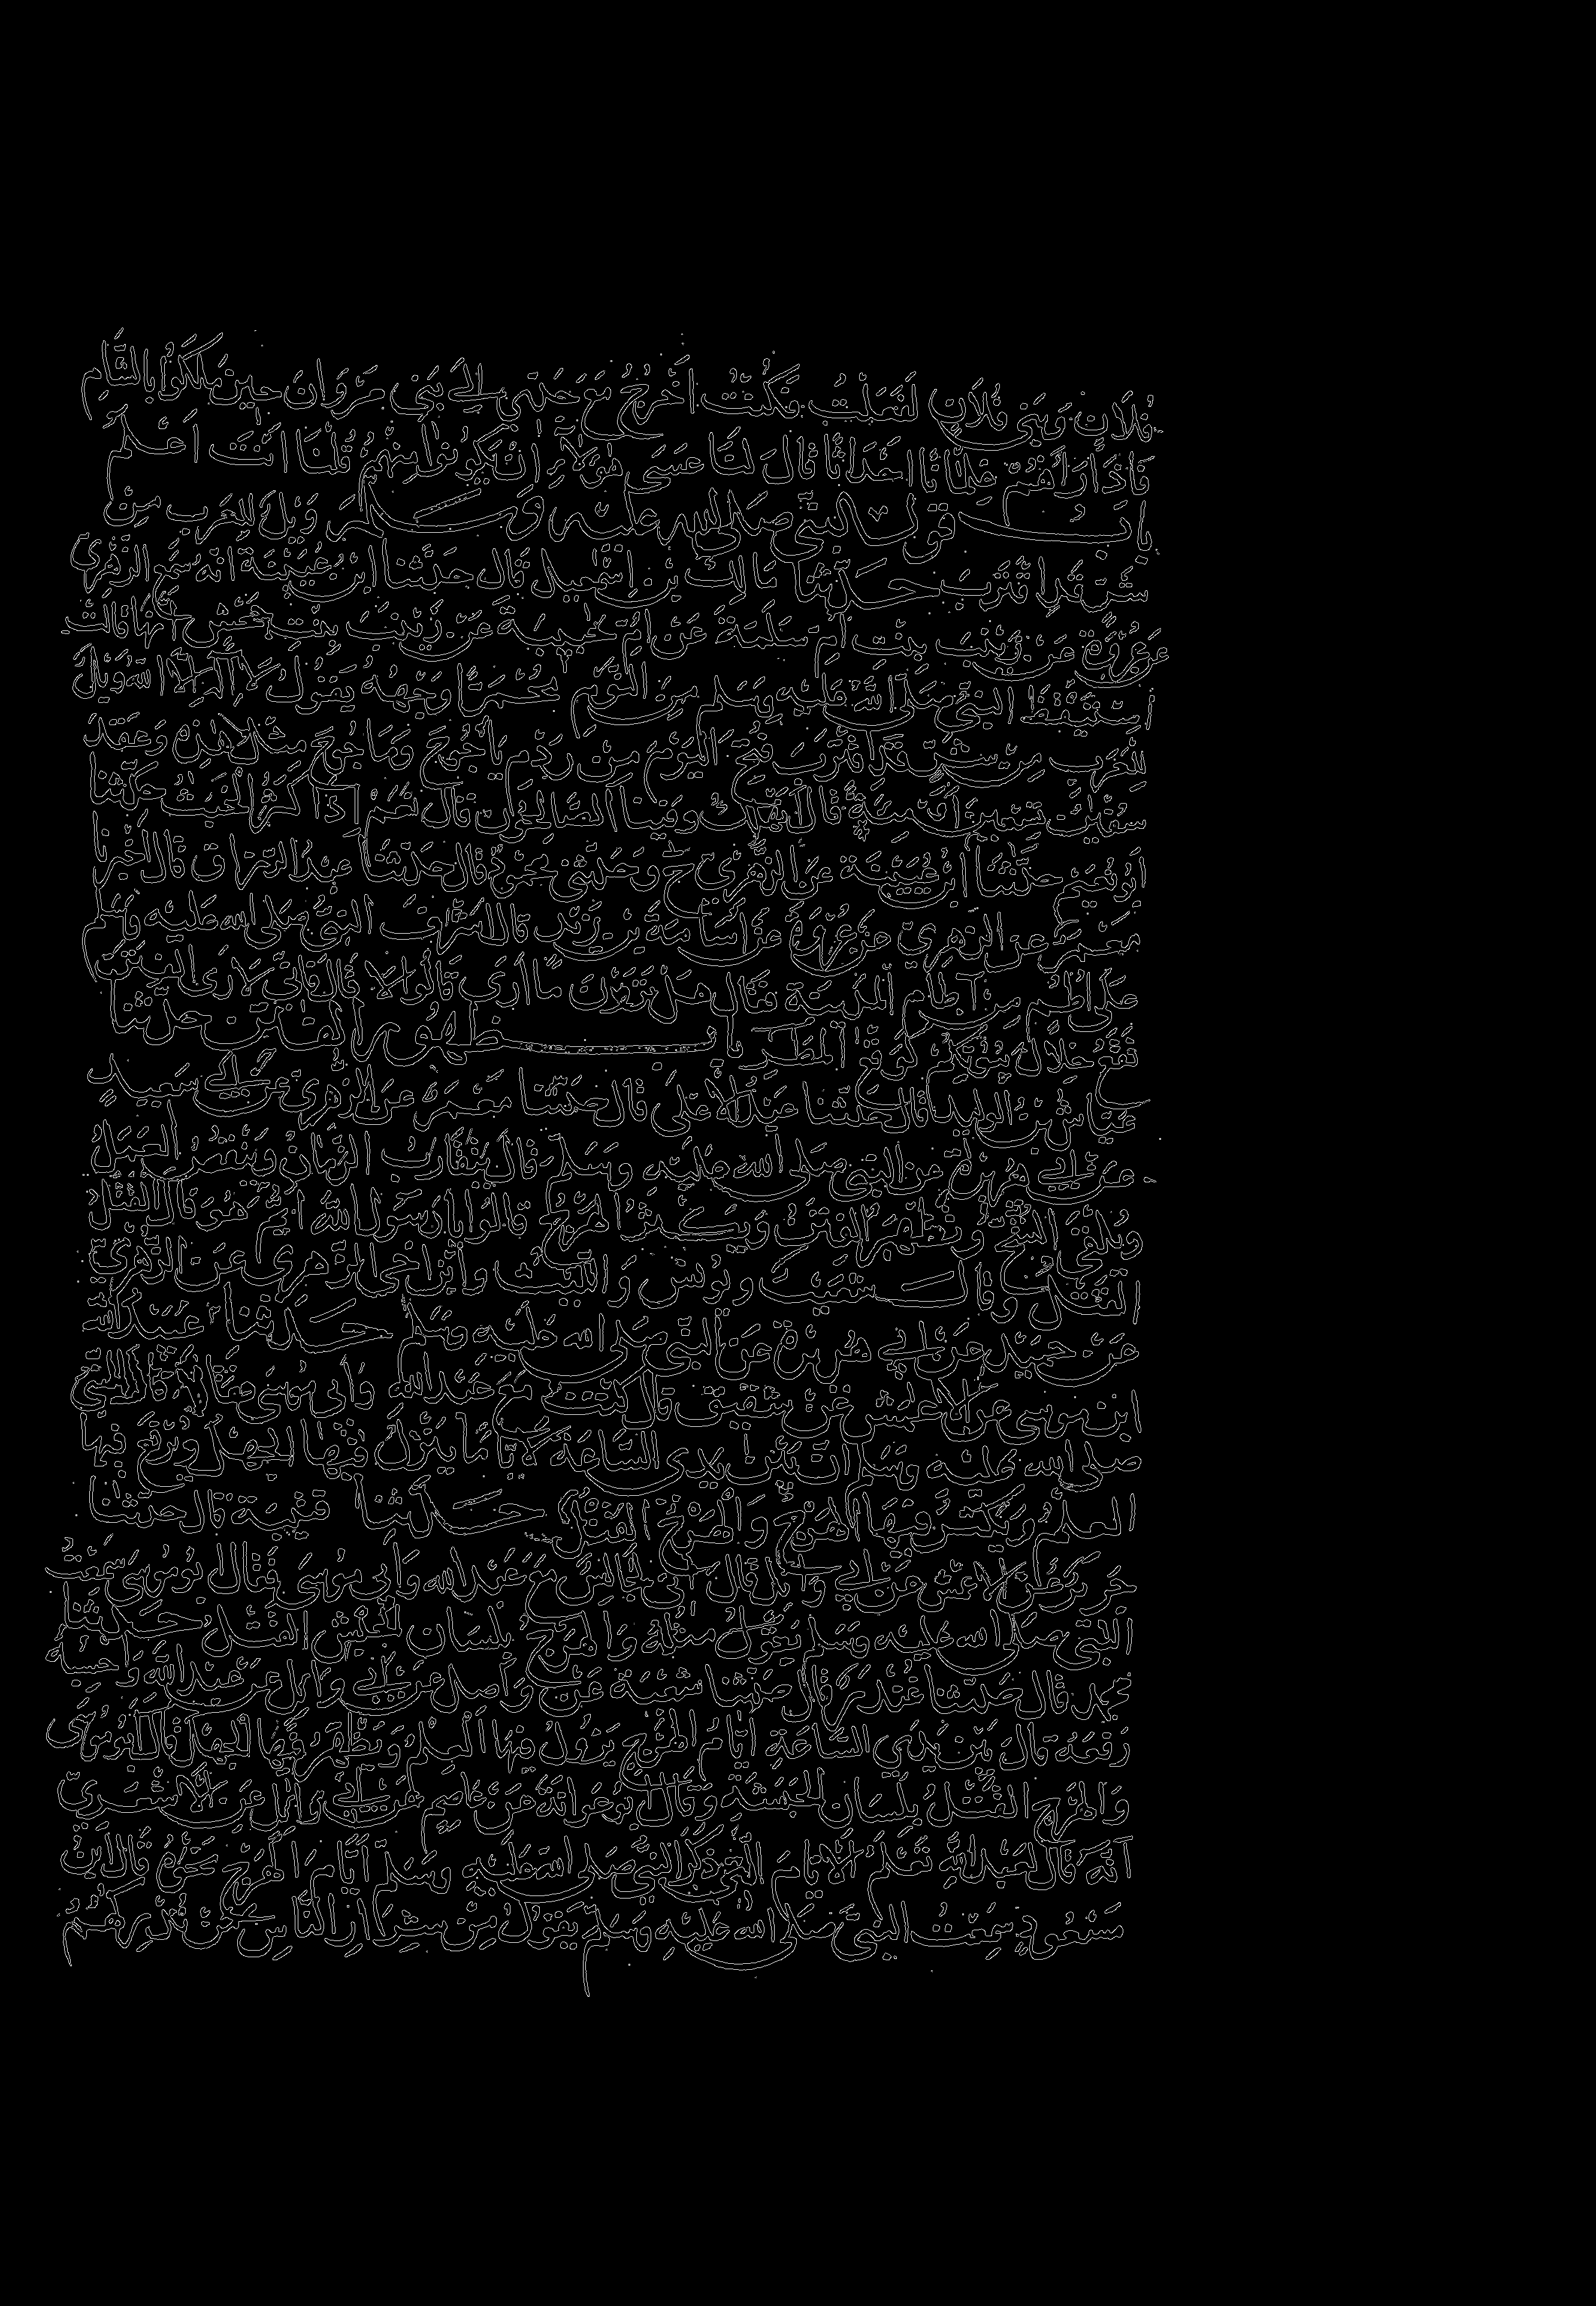 فلان وبني فلان لفعلت فكنت اخرج مع جدي الى بني مروان حين ملكوا بالشام
فاذا رآهم غلمانا احداثا قال لنا عسى هولاء ان يكونوا منهم قلنا انت اعلم
باب قول النبي صلى الله عليه وسلم ويل للعرب من
شر قد اقترب حدثنا مالك بن اسمعيل قال حدثنا ابن عيينة انه سمع الزهري
عن عروة عن زينب بنت ام سلمة عن ام حبيبة عن زينب بنت جحش انها قالت
استيقظ النبي صلى الله عليه وسلم من النوم محمرا وجهه يقول لا اله الا الله ويل
للعرب من شر قد اقترب فتح اليوم من ردم ياجوج وماجوج مثل هذه وعقد
سفين تسعين او مئة قال انهلك وفينا الصالحون قال نعم اذا كثر الخبث حدثنا
ابو نعيم حدثنا ابن عيينة عن الزهري ح وحدثني محمود قال حدثنا عبد الرزاق قال اخبرنا
معمر عن الزهري عن عروة عن اسامة بن زيد قال اشرف النبي صلى الله عليه وسلم
على اطم من آطام المدينة فقال هل ترون ما ارى قالوا لا قال فاني لارى الفتن
تقع خلال بيوتكم كوقع المطر باب ظهور الفتن حدثنا
عياش بن الوليد قال حدثنا عبد الاعلى قال حدثنا معمر عن الزهري عن سعيد
عن ابي هريرة عن النبي صلى الله عليه وسلم قال يتقارب الزمان وينقص العمل
ويلقى الشح وتظهر الفتن ويكثر الهرج قالوا يا رسول الله ايم هو قال القتل
القتل وقال شعيب ويونس والليث وابن اخي الزهري عن الزهري
عن حميد عن ابي هريرة عن النبي صلى الله عليه وسلم حدثنا عبيد الله
ابن موسى عن الاعمش عن شقيق قال كنت مع عبد الله وابي موسى فقالا قال النبي
صلى الله عليه وسلم ان بين يدي الساعة لاياما ينزل فيها الجهل ويرفع فيها
العلم ويكثر فيها الهرج والهرج القتل حدثنا قتيبة قال حدثنا
جرير عن الاعمش عن ابي وائل قال اني لجالس مع عبد الله وابي موسى فقال ابو موسى سمعت
النبي صلى الله عليه وسلم يقول مثله والهرج بلسان الحبش القتل حدثنا
محمد قال حدثنا غندر قال حدثنا شعبة عن واصل عن ابي وائل عن عبد الله واحسبه
رفعه قال بين يدي الساعة ايام الهرج يزول فيها العلم ويظهر فيها الجهل قال ابو موسى
والهرج القتل بلسان الحبشة وقال ابو عوانة عن عاصم عن ابي وائل عن الاشعري
انه قال لعبد الله تعلم الايام التي ذكر النبي صلى الله عليه وسلم ايام الهرج نحوه قال ابن
مسعود سمعت النبي صلى الله عليه وسلم يقول من شرار الناس من تدركهم